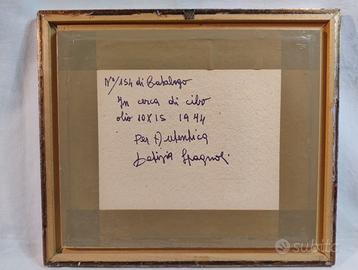 N°/154 di Catalogo
In cerca di cibo
olio 10X15 1944
Per Autentica
Letizia Spagnoli
subito